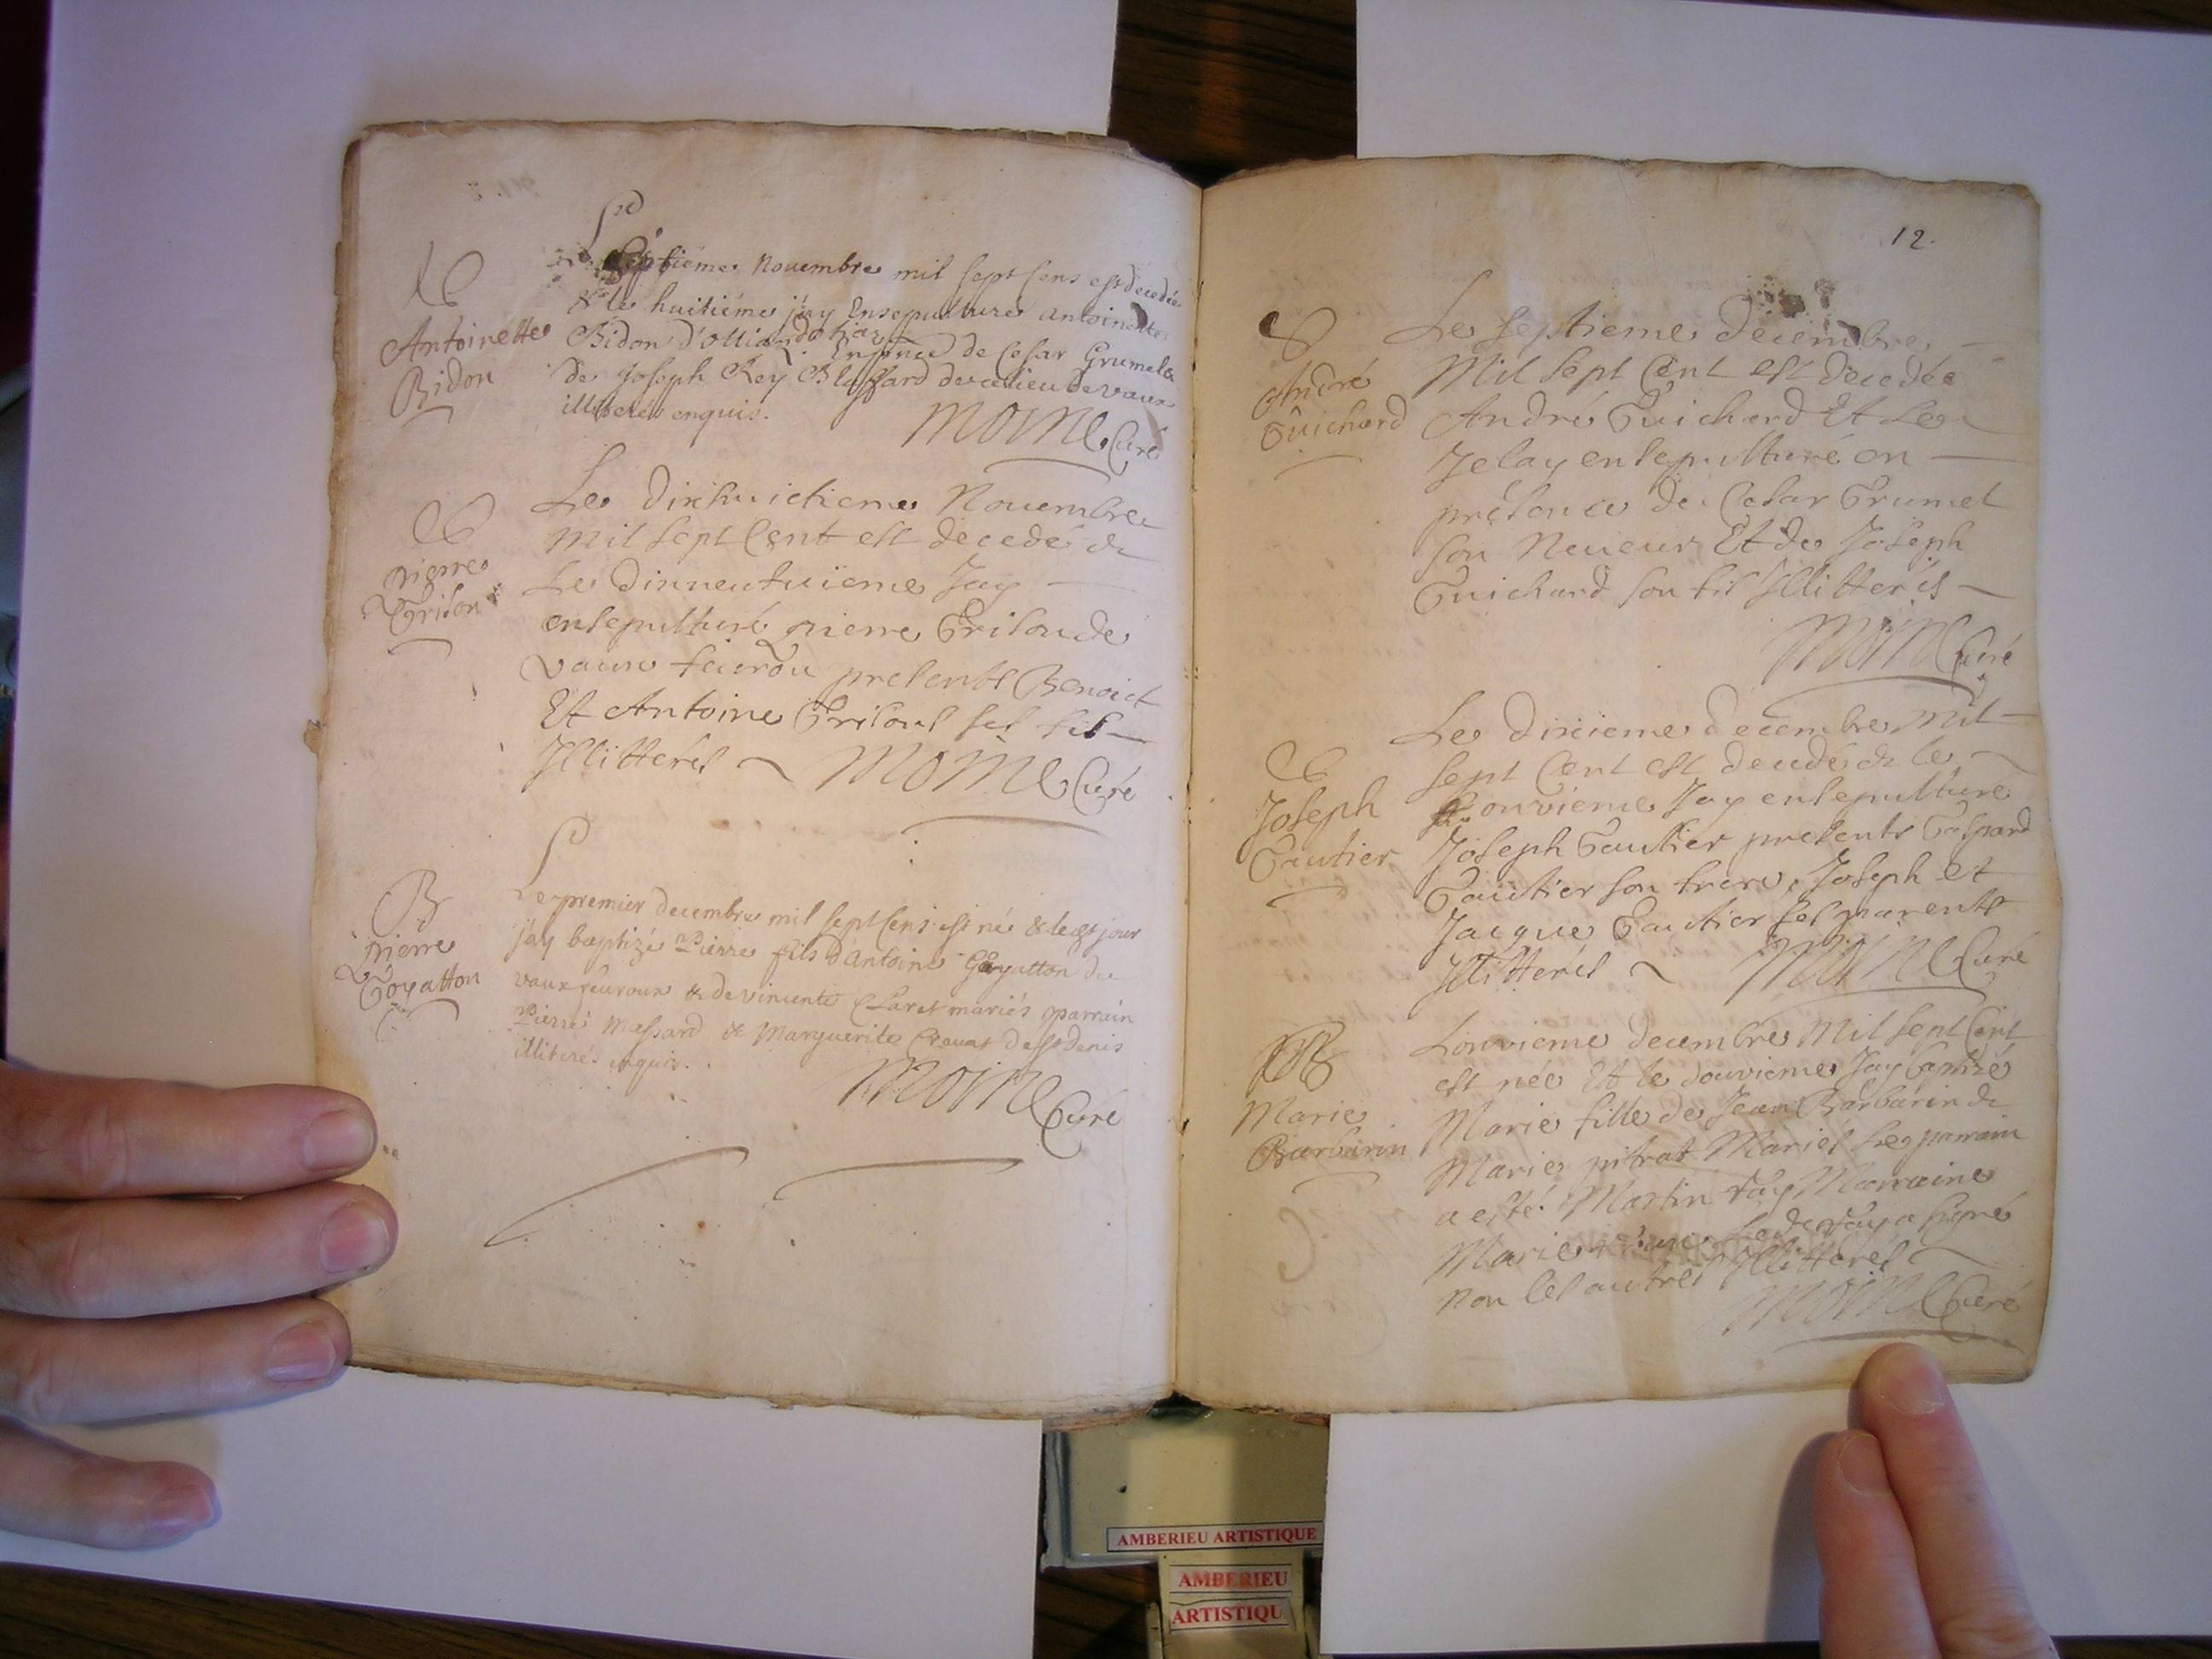 Le septiéme Novembre mil sept cens est decedée
& le huitiéme j'ay Ensepulturé antoinette
Antoinette
Bidon
Bidon d'ollian
En pnce de Cesar Grumel &
de Joseph Rey Blassard de ce lieu de vaux
illiterés enquis.
Moine Curé
Le dixhuictieme Novembre
mil sept Cent est decedé &
Le dixneufvieme Jay
pierre
Grison
ensepulturé pierre Grison de
vaux fevrou presents Benoict
Et Antoine Grisons ses fils
Illitterés Moine Curé
Le premier decembre mil sept cens est né & led jour
j'ay baptizé Pierre fils d'antoine Goyatton de
pierre
Goyatton
vaux feuroux & de vincente Claret mariés parrain
Pierre Massard & Marguerite Crevat de st denis
illiterés enquis.
Moine Curé
12.
Le septieme decembre
Mil sept Cent est decedée
André
Guichard
André Guichard Et Le
Je lay ensepulturé en
présence de Cesar Grumel
son Neveur Et de Joseph
Guichard son fils Illitterés
Moine Curé
Le dixieme decembre Mil
sept Cent est decedé & le
Joseph
Gautier
onvieme Jay ensepulturé
Joseph Gautier presents Gaspard
Gautier son frere, Joseph et
Jacque Gautier ses parents
Illitterés Moine Curé
Lonvieme decembre Mil sept Cent
est née Et le douvieme Jay baptisé
Marie
Barbarin
Marie fille de Jean Barbarin &
Marie pitrat Mariés Les parrain
a esté Martin fay Marraine
Marie Led fay a signé
non les autres Illitterés
Moine Curé
AMBERIEU ARTISTIQUE
AMBERIEU
ARTISTIQU